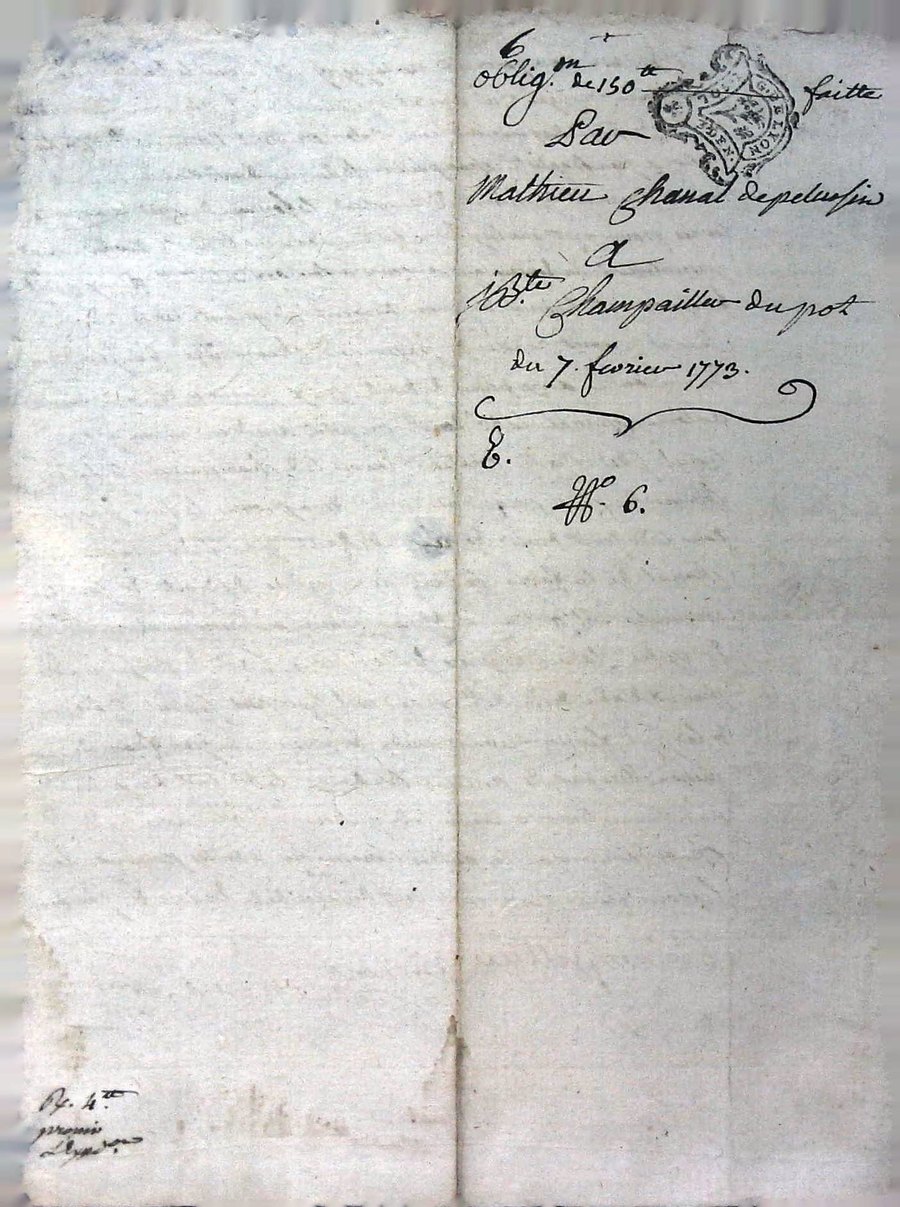 6
oblig.on de 150 tt faitte
Par
Mathieu Chanal de pelussin
a
jBte Champailler du pot
du 7. fevrier 1773.
E.
No. 6.
GEN. DE LYON
R. 4 tt